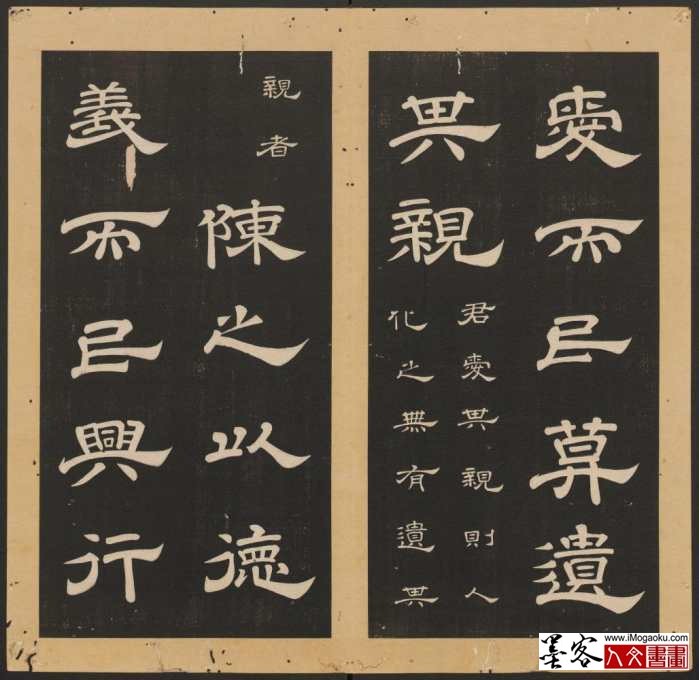 愛而民莫遺
其親
君愛其親則人
化之無有遺其
親者
陳之以德
義而民興行
墨客
www.iMogaoku.com
人文書畫